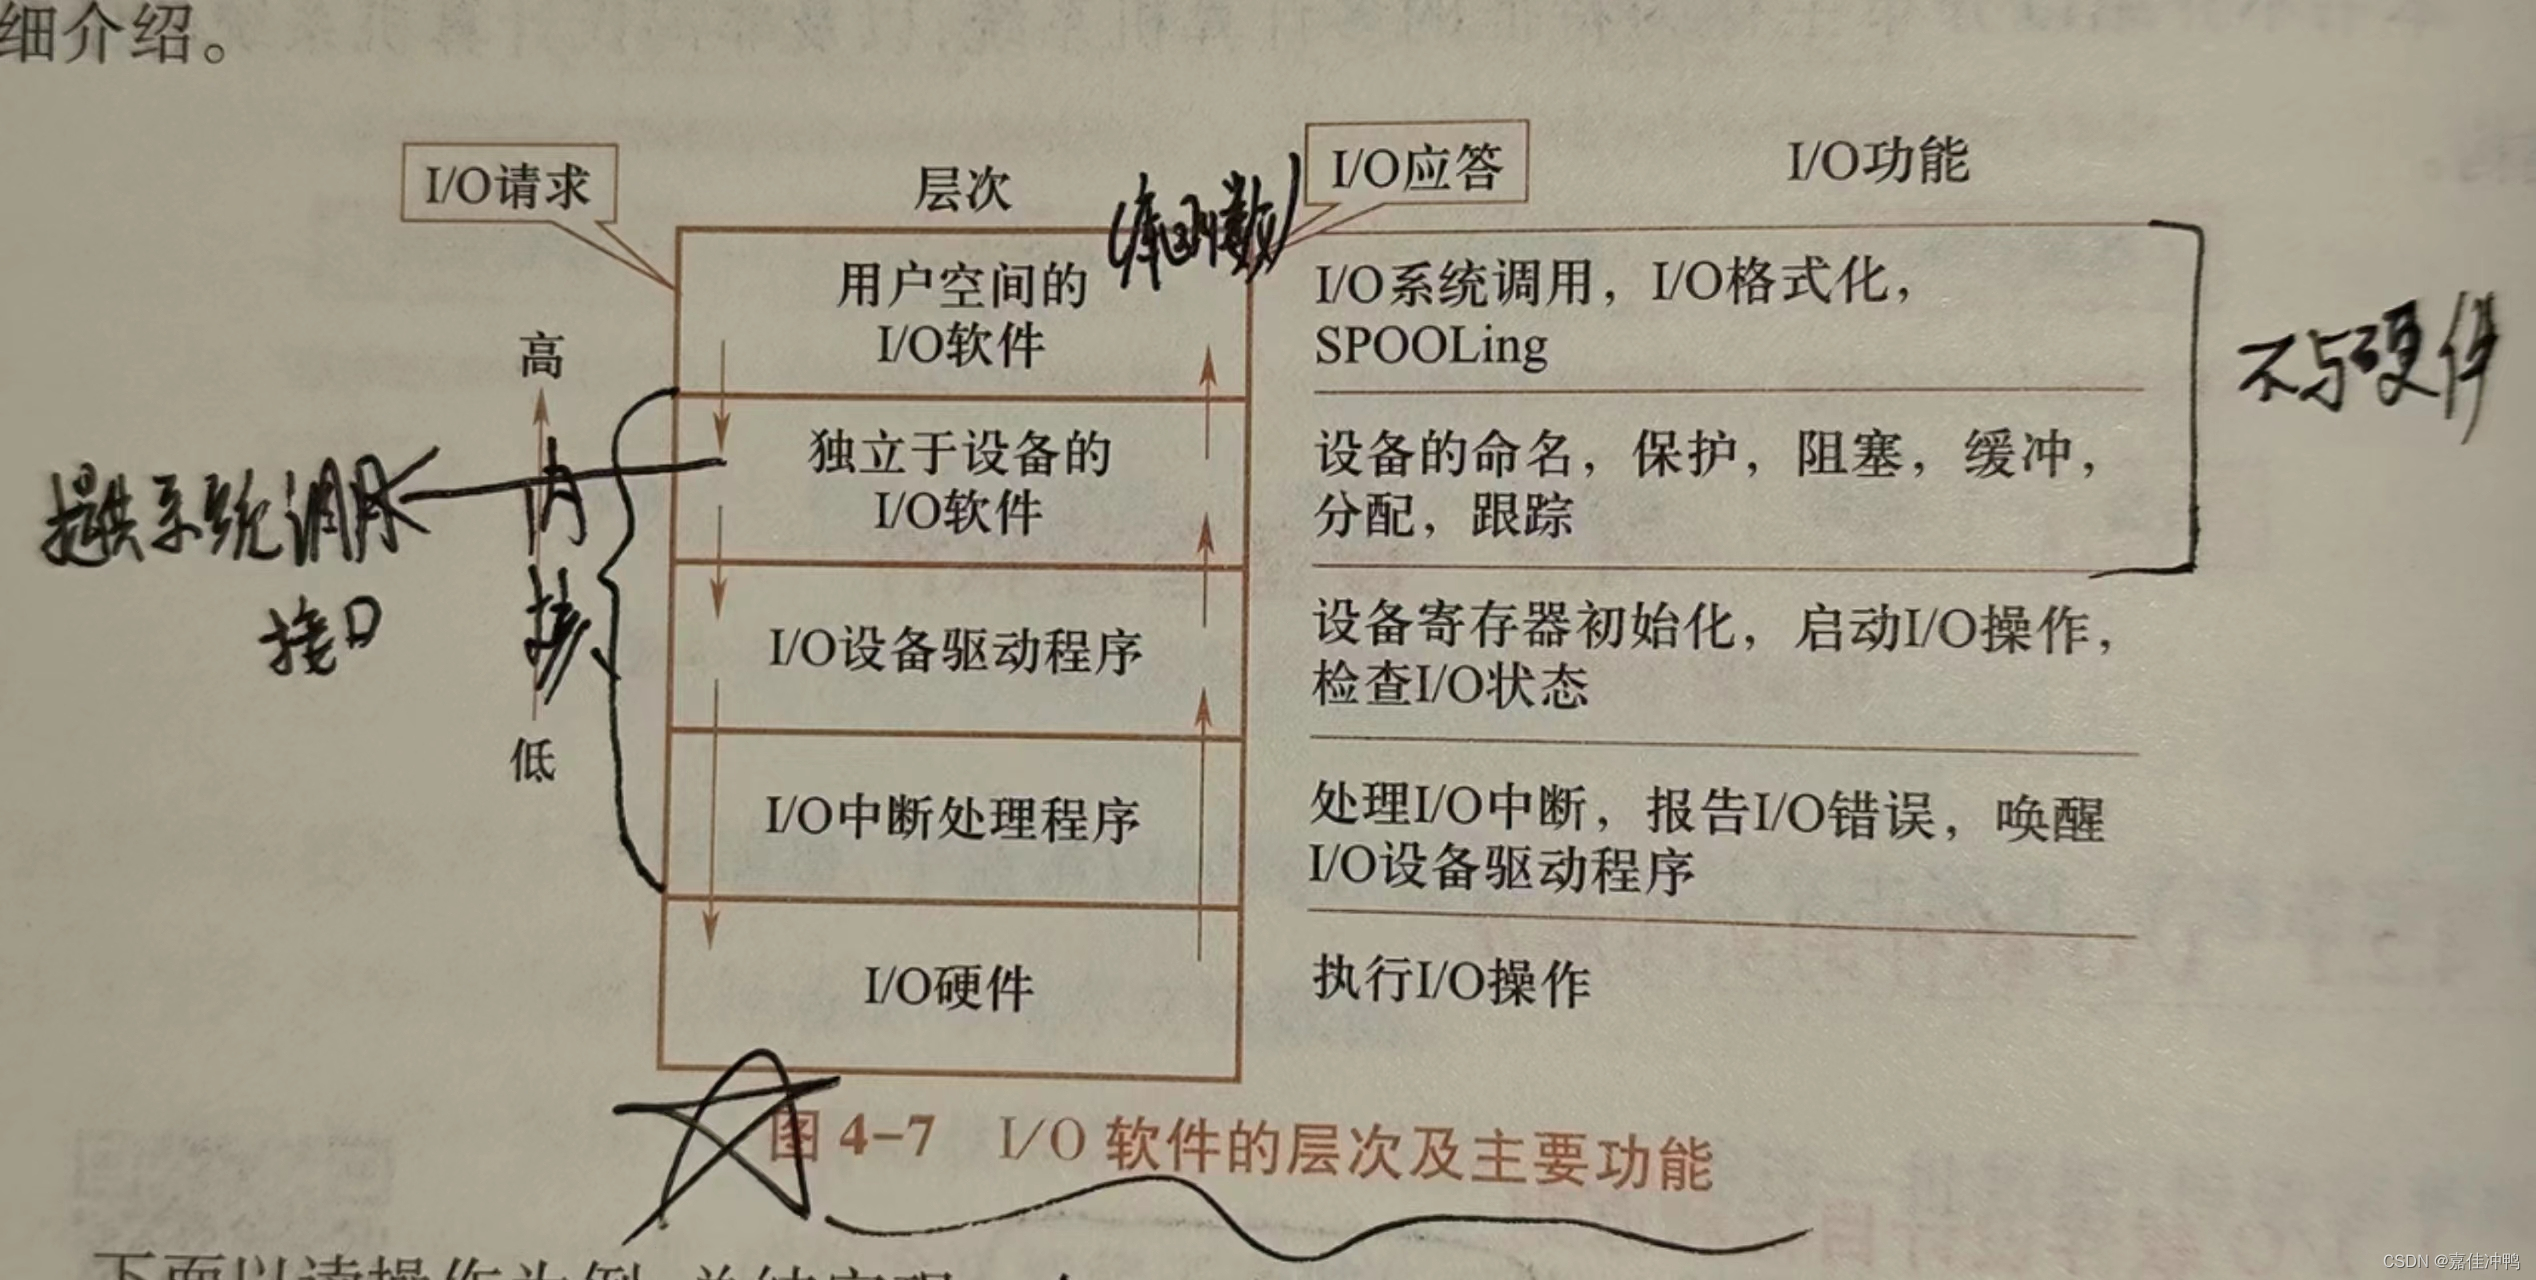 细介绍。
I/O请求
层次
(库函数)
I/O应答
I/O功能
高
低
用户空间的
I/O软件
I/O系统调用，I/O格式化，
SPOOLing
不与硬件
提供系统调用
接口
内
核
独立于设备的
I/O软件
设备的命名，保护，阻塞，缓冲，
分配，跟踪
I/O设备驱动程序
设备寄存器初始化，启动I/O操作，
检查I/O状态
I/O中断处理程序
处理I/O中断，报告I/O错误，唤醒
I/O设备驱动程序
I/O硬件
执行I/O操作
图 4-7 I/O 软件的层次及主要功能
下面以读操作为例
CSDN @嘉佳冲鸭